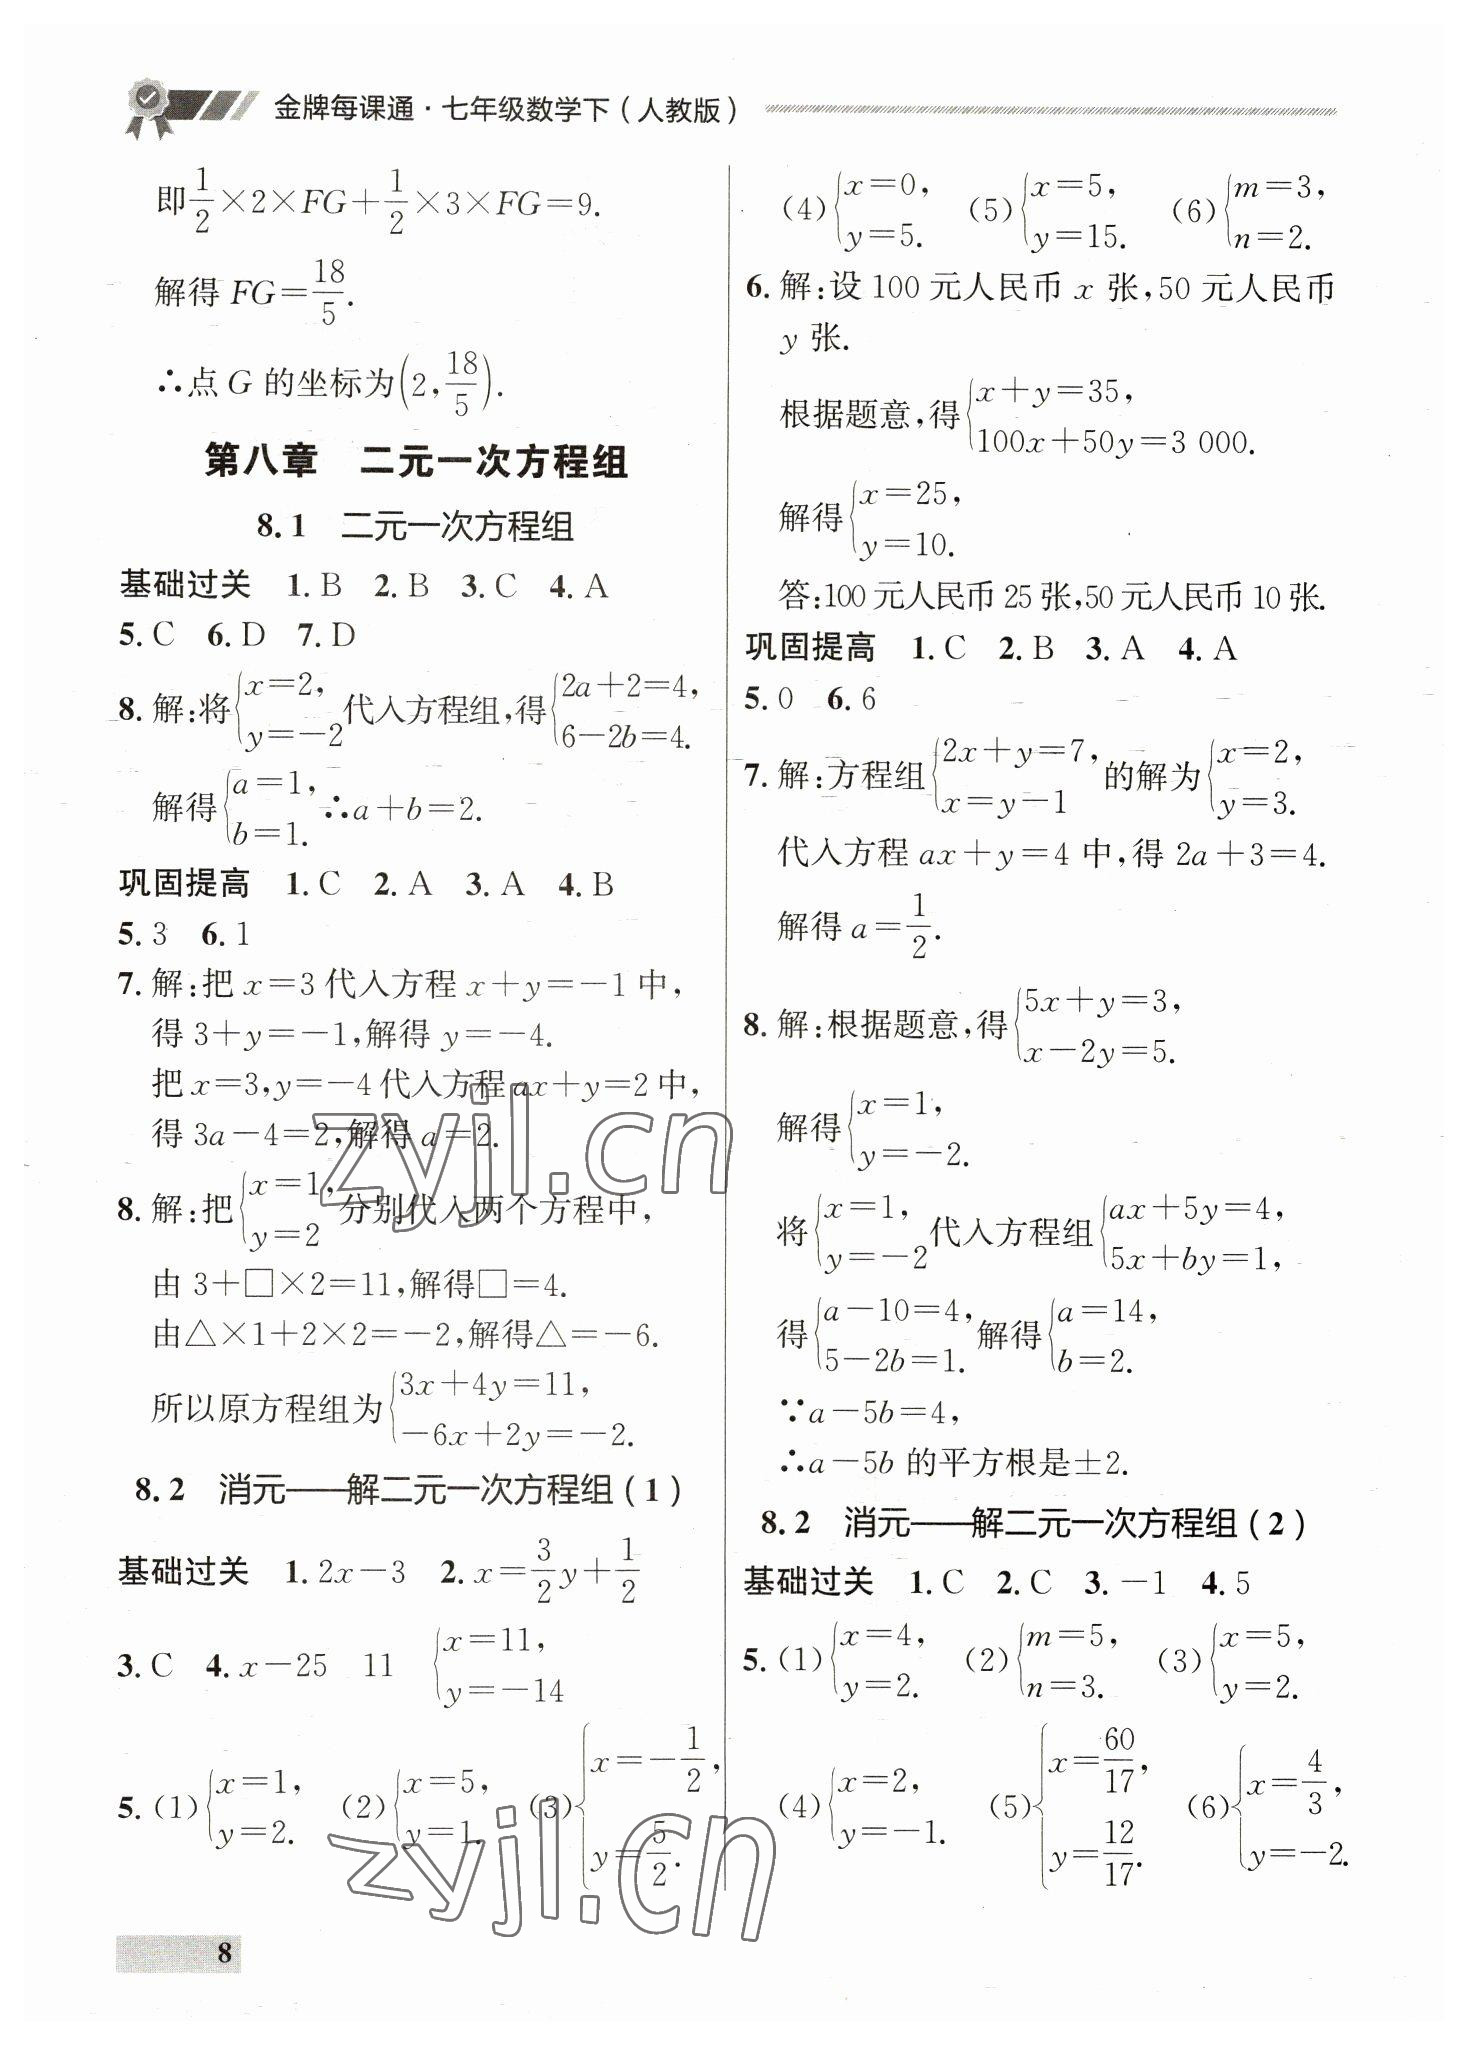 金牌每课通·七年级数学下(人教版)
即1/2×2×FG+1/2×3×FG=9.
解得 FG=18/5.
∴点 G 的坐标为(2,18/5).
第八章 二元一次方程组
8.1 二元一次方程组
基础过关 1.B 2.B 3.C 4.A
5.C 6.D 7.D
8.解:将{x=2, y=-2 代入方程组,得{2a+2=4, 6-2b=4.
解得{a=1, b=1. ∴a+b=2.
巩固提高 1.C 2.A 3.A 4.B
5.3 6.1
7.解:把 x=3代入方程 x+y=-1中,
得3+y=-1,解得 y=-4.
把 x=3,y=-4代入方程ax+y=2中,
得3a-4=2,解得a=2.
8.解:把{x=1, y=2 分别代入两个方程中,
由3+□×2=11,解得□=4.
由△×1+2×2=-2,解得△=-6.
所以原方程组为{3x+4y=11, -6x+2y=-2.
8.2 消元——解二元一次方程组(1)
基础过关 1.2x-3 2.x=3/2y+1/2
3.C 4.x-25 11 {x=11, y=-14
5.(1){x=1, y=2. (2){x=5, y=1. (3){x=-1/2, y=5/2.
(4){x=0, y=5. (5){x=5, y=15. (6){m=3, n=2.
6.解:设100元人民币 x 张,50元人民币
y 张.
根据题意,得{x+y=35, 100x+50y=3 000.
解得{x=25, y=10.
答:100元人民币25张,50元人民币10张.
巩固提高 1.C 2.B 3.A 4.A
5.0 6.6
7.解:方程组{2x+y=7, x=y-1 的解为{x=2, y=3.
代入方程 ax+y=4中,得2a+3=4.
解得a=1/2.
8.解:根据题意,得{5x+y=3, x-2y=5.
解得{x=1, y=-2.
将{x=1, y=-2 代入方程组{ax+5y=4, 5x+by=1,
得{a-10=4, 5-2b=1. 解得{a=14, b=2.
∵a-5b=4,
∴a-5b的平方根是±2.
8.2 消元——解二元一次方程组(2)
基础过关 1.C 2.C 3.-1 4.5
5.(1){x=4, y=2. (2){m=5, n=3. (3){x=5, y=2.
(4){x=2, y=-1. (5){x=60/17, y=12/17. (6){x=4/3, y=-2.
8
zyjl.cn
zyjl.cn